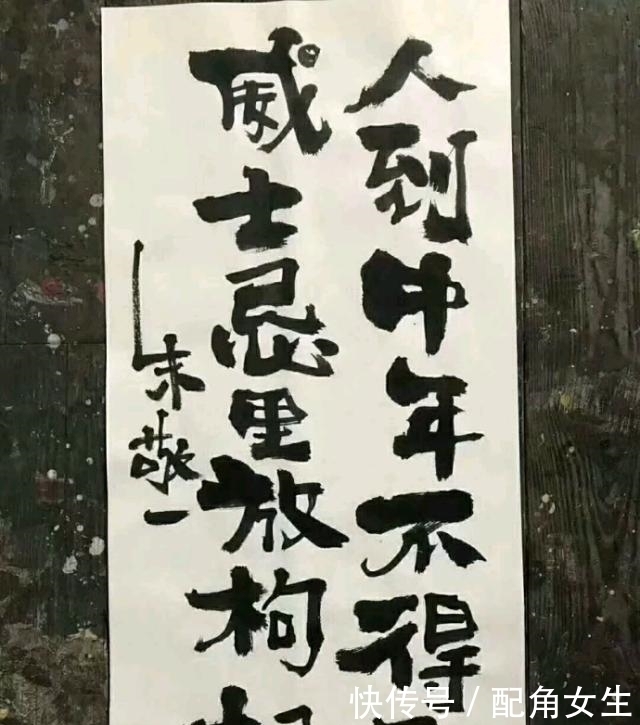 人到中年不得
威士忌里放枸
朱敬一
快传号 / 配角女生